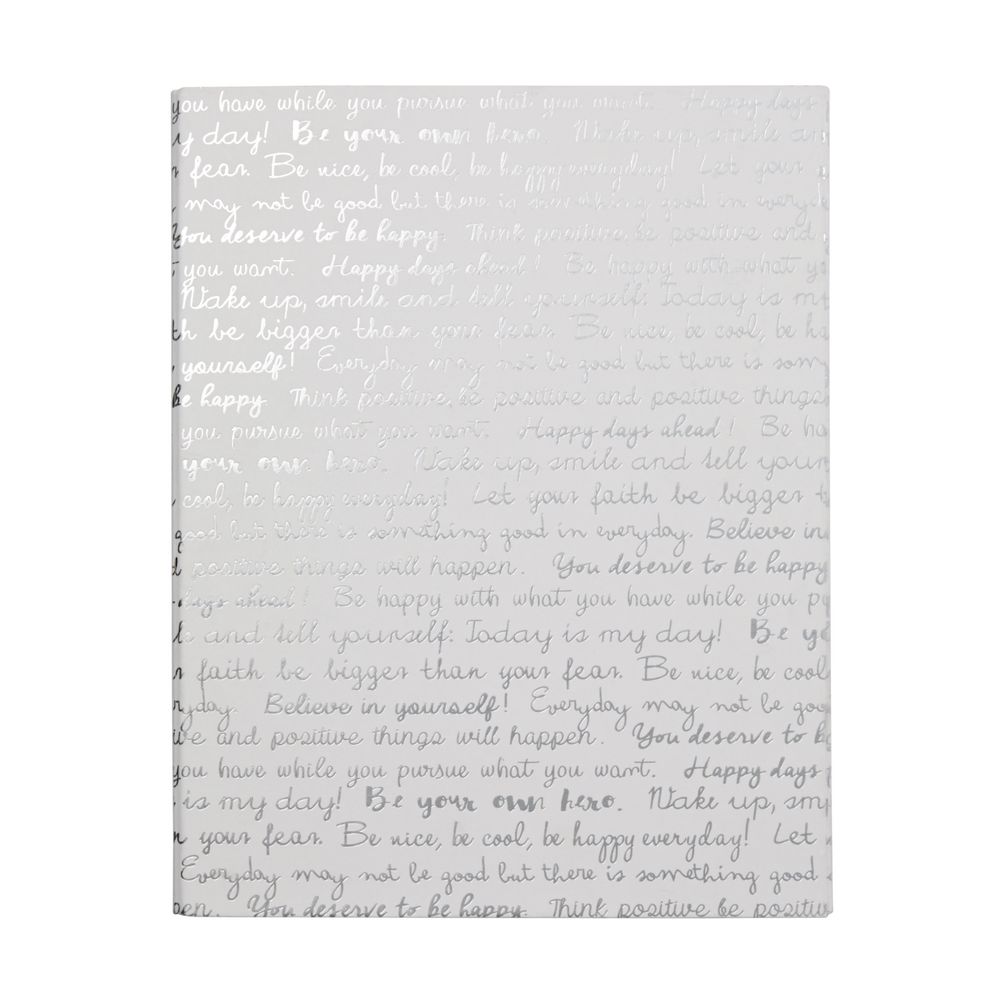 you have while you pursue what you want. Happy days
y day! Be your own hero. Wake up, smile an
r fear. Be nice, be cool, be happy everyday! Let your
may not be good but there is something good in everyd
You deserve to be happy. Think positive, be positive and
you want. Happy days ahead! Be happy with what yo
Wake up, smile and tell yourself: Today is m
th be bigger than your fear. Be nice, be cool, be ha
yourself! Everyday may not be good but there is som
be happy. Think positive, be positive and positive things
you pursue what you want. Happy days ahead! Be ha
your own hero. Wake up, smile and tell your
cool, be happy everyday! Let your faith be bigger t
good but there is something good in everyday. Believe in
d positive things will happen. You deserve to be happy
days ahead! Be happy with what you have while you p
le and tell yourself: Today is my day! Be yo
r faith be bigger than your fear. Be nice, be cool
ryday. Believe in yourself! Everyday may not be goo
ive and positive things will happen. You deserve to b
you have while you pursue what you want. Happy days
is my day! Be your own hero. Wake up, smi
n your fear. Be nice, be cool, be happy everyday! Let
Everyday may not be good but there is something good
pen. You deserve to be happy. Think positive be positiv